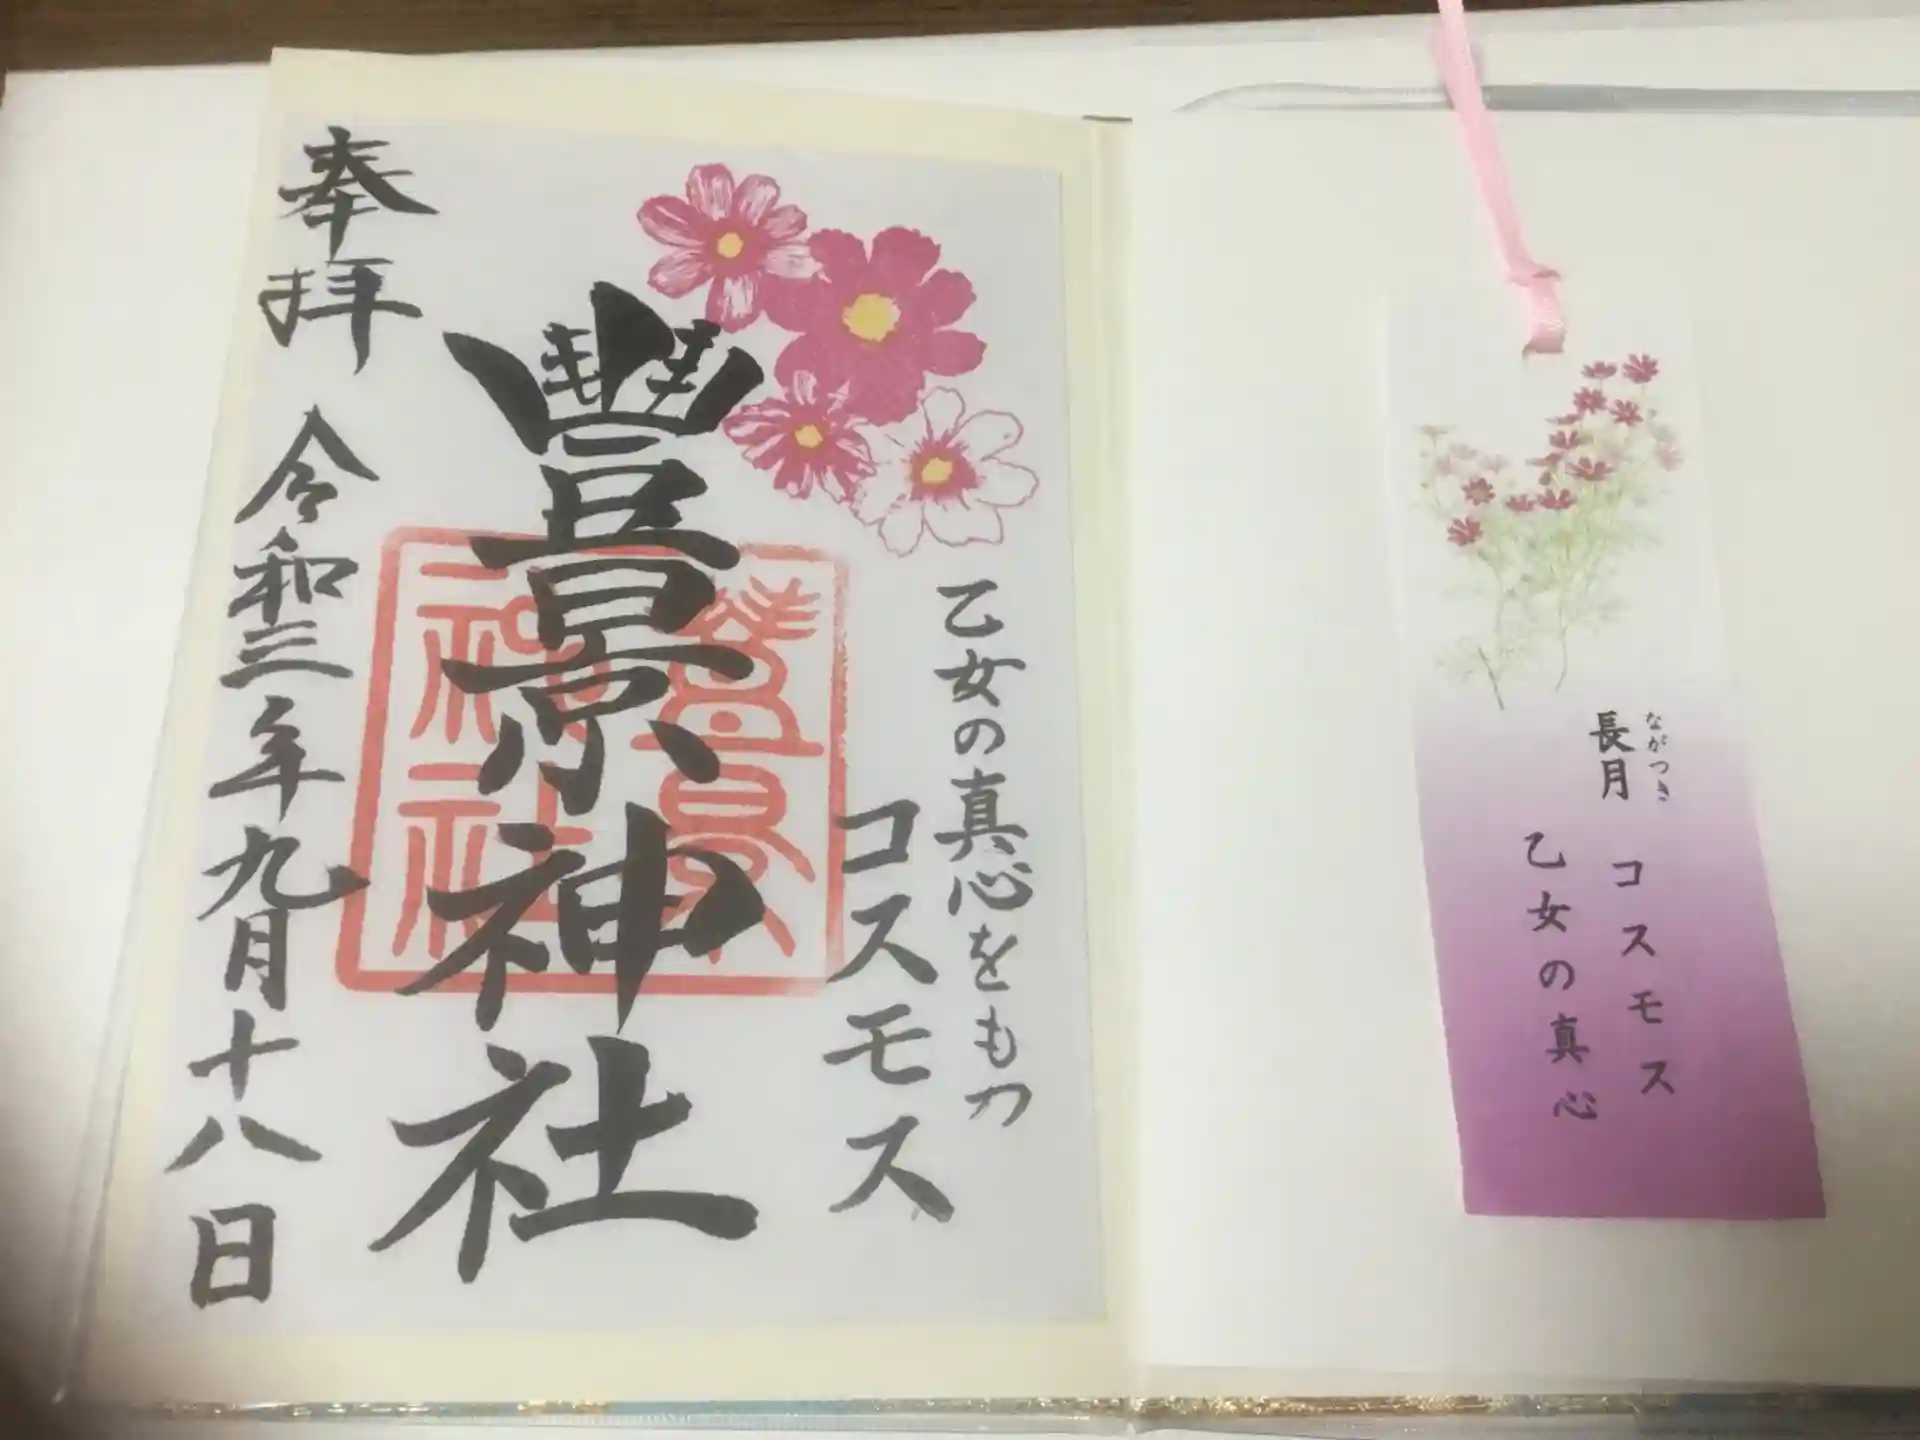 乙女の真心をもつ
コスモス
豊景神社
豊景
神社
奉拝
令和三年九月十八日
ながつき
長月 コスモス
乙女の真心